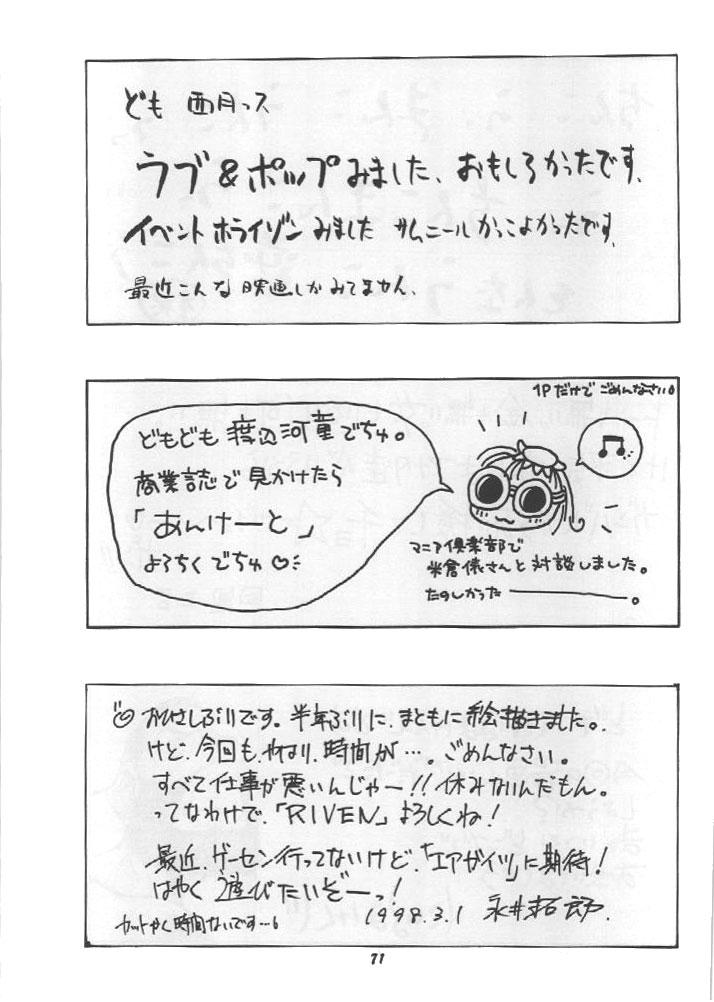 ども 西月っス
ラブ&ポップみました、おもしろかったです、
イベントホライゾンみました サムニールかっこよかったです、
最近こんな映画しかみてません、
1Pだけでごめんなさい。
どもども 渡辺河童でちゅ。
商業誌で見かけたら
「あんけーと」
よろちくでちゅ♡
マニア倶楽部で
米倉俵さんと対談しました。
たのしかった――――。
おひさしぶりです。半年ぶりに、まともに絵描きました。
けど、今回も、やはり、時間が…。ごめんなさい。
すべて仕事が悪いんじゃー!!休みないんだもん。
ってなわけで、「RIVEN」よろしくね!
最近、ゲーセン行ってないけど、「エアガイツ」に期待!
はやく遊びたいぞーっ!
1998.3.1 永井拓郎.
カットかく時間ないです…。
71